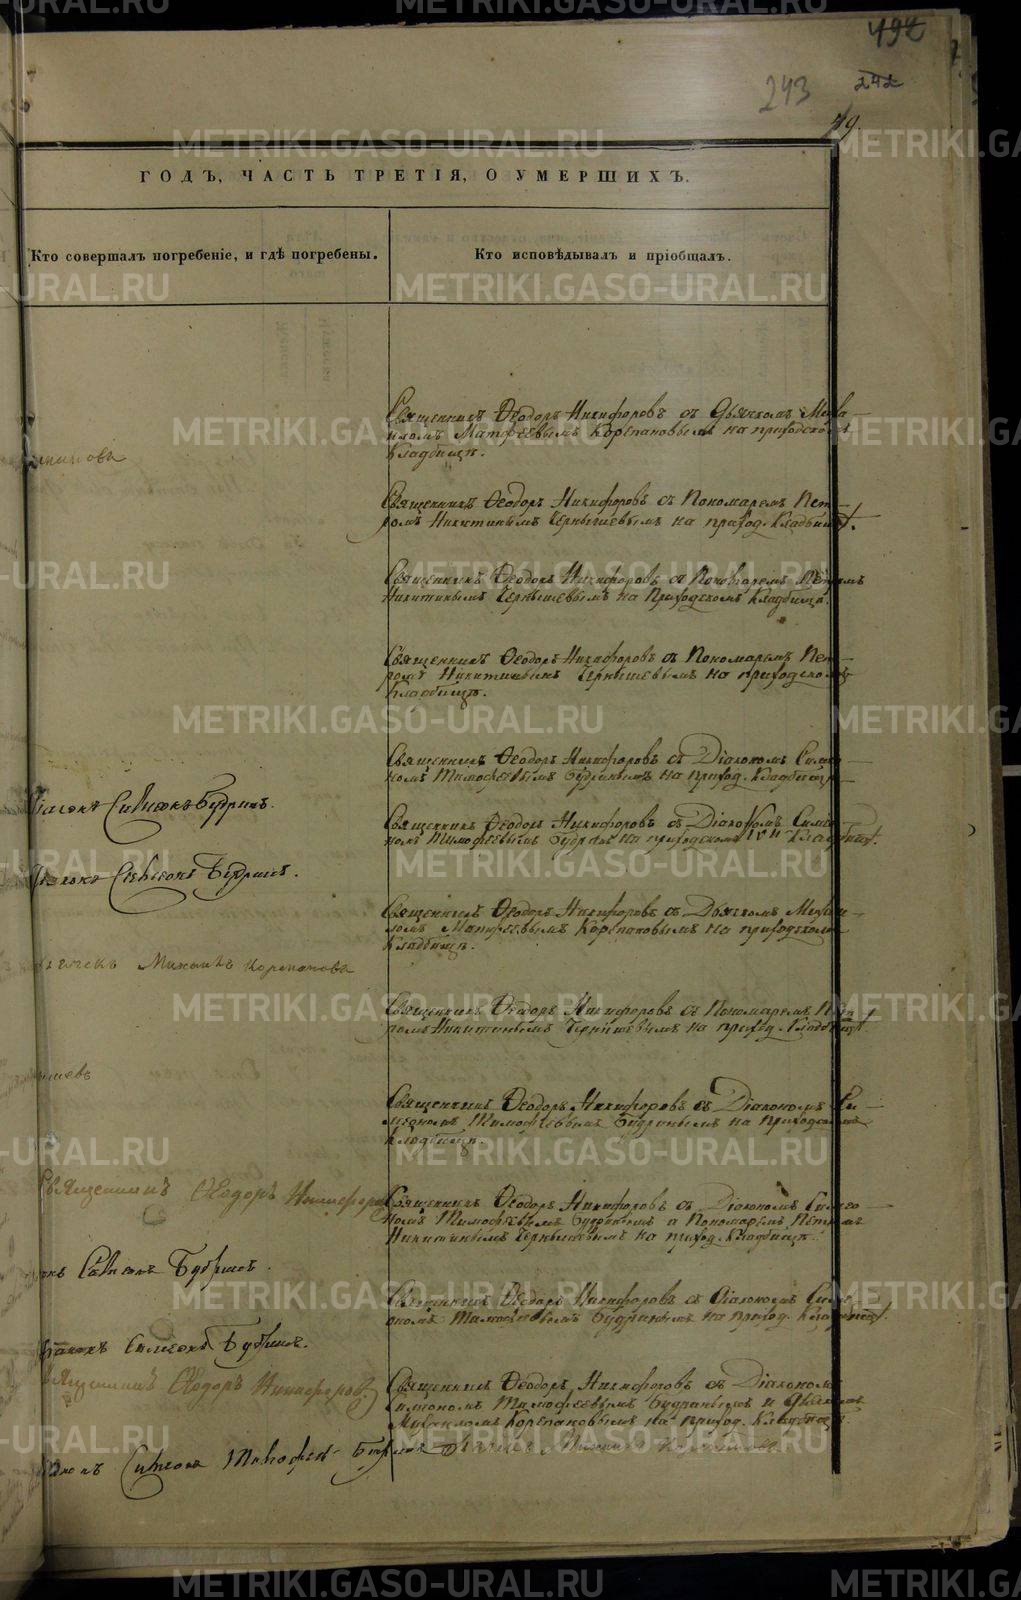 492
243
242
79.
ГОДЪ, ЧАСТЬ ТРЕТІЯ, О УМЕРШИХЪ.
Кто совершалъ погребеніе, и гдѣ погребены.
Кто исповѣдывалъ и пріобщалъ.
Священникъ Ѳеодоръ Никифоровъ съ Дьячкомъ Миха
иломъ Матѳеевымъ Корепановымъ на приходскомъ
кладбищѣ.
Священникъ Ѳеодоръ Никифоровъ съ Пономаремъ Пет
ромъ Никитинымъ Чернышевымъ на приход. кладбищѣ.
Священникъ Ѳеодоръ Никифоровъ съ Пономаремъ Петромъ
Никитинымъ Чернышевымъ на Приходскомъ кладбищѣ.
Священникъ Ѳеодоръ Никифоровъ съ Пономаремъ Пет
ромъ Никитинымъ Чернышевымъ на приходскомъ
кладбищѣ.
Священникъ Ѳеодоръ Никифоровъ съ Діакономъ Симео
номъ Тимофеевымъ Будринымъ на приход. кладбищѣ
Симеонъ Будринъ.
Священникъ Ѳеодоръ Никифоровъ съ Діакономъ Симео
номъ Тимофеевымъ на приходскомъ кладбищѣ.
Симеонъ Будринъ.
Священникъ Ѳеодоръ Никифоровъ съ Дьячкомъ Михаи
ломъ Матѳеевымъ Корепановымъ на приходскомъ
кладбищѣ.
Михаилъ Корепановъ
Священникъ Ѳеодоръ Никифоровъ съ Пономаремъ Пет
ромъ Никитинымъ Чернышевымъ на приход. кладбищѣ
Священникъ Ѳеодоръ Никифоровъ съ Діакономъ Си
меономъ Тимофеевымъ Будринымъ на приходскомъ
кладбищѣ.
Священникъ Ѳеодоръ Никифоровъ
Священникъ Ѳеодоръ Никифоровъ съ Діакономъ Симео
номъ Тимофеевымъ Будринымъ и Пономаремъ Петромъ
Никитинымъ Чернышевымъ на приход. кладбищѣ.
Симеонъ Будринъ.
Священникъ Ѳеодоръ Никифоровъ съ Діакономъ Симе
ономъ Тимофеевымъ Будринымъ на приход. кладбищѣ.
Симеонъ Будринъ.
Священникъ Ѳеодоръ Никифоровъ
Священникъ Ѳеодоръ Никифоровъ съ Діакономъ
Симеономъ Тимофеевымъ Будринымъ и Дьячкомъ
Михаиломъ Корепановымъ на приход. кладбищѣ
Симеонъ Тимофей Будринъ Дьячекъ Михаилъ Корепановъ
METRIKI.GASO-URAL.RU